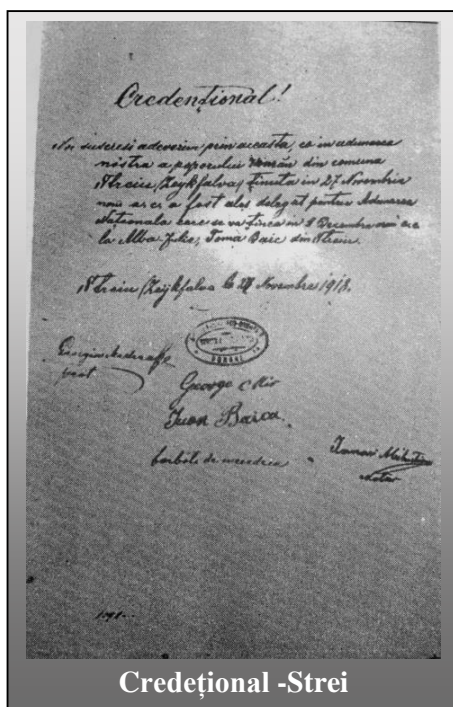 Credențional!
Noi suscrisi adeverim prin aceasta, că in adunarea
nostra a poporului român din comuna
Streiu /Zeykfalva/ ținuta in 27 Novembrie
nou a.c. a fost ales delegat pentru Adunarea
Națională care se va ținea in 1 Decembrie nou a.c.
la Alba-Julia, Toma Baic din Streiu.
Streiu /Zeykfalva la 27 Novembre 1918.
George Mir
Iuon Baica.
barbati de incredere
notar
Credețional -Strei